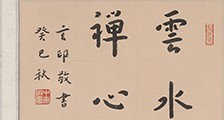 雲水
禪心
言印敬書
癸巳秋